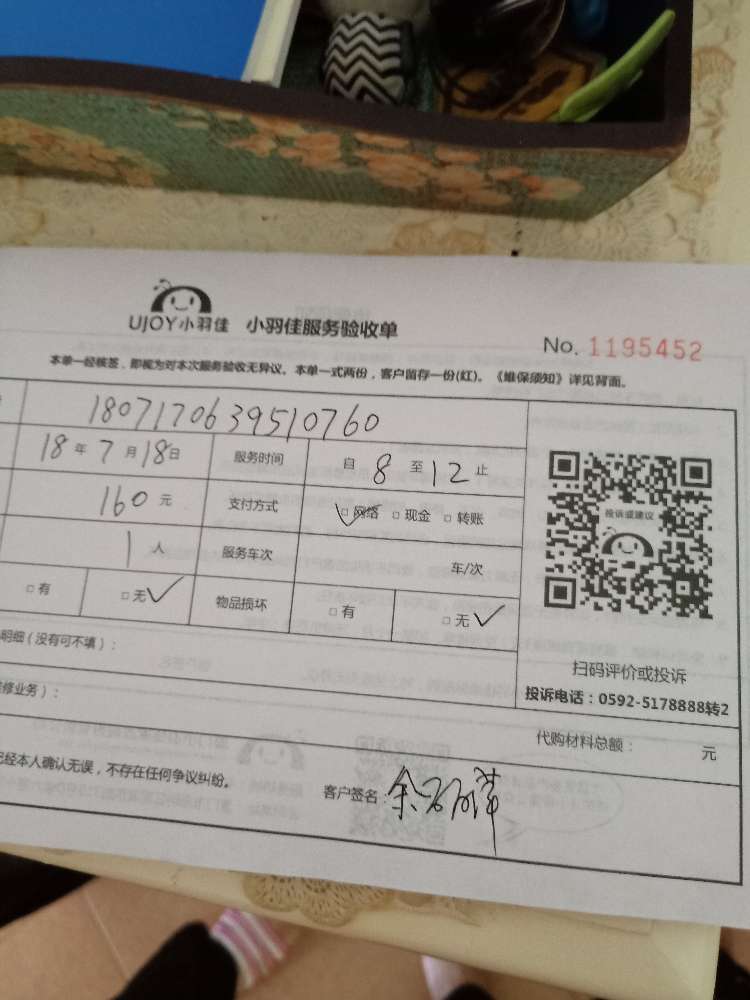 UJOY小羽佳 小羽佳服务验收单
No. 1195452
本单一经核签，即视为对本次服务验收无异议。本单一式两份，客户留存一份(红)。《维保须知》详见背面。
1807170639510760
18年7月18日 服务时间 自8至12止
160元 支付方式 □网络 □现金 □转账
1人 服务车次 车/次
□有 □无 物品损坏 □有 □无
投诉或建议
扫码评价或投诉
投诉电话：0592-5178888转2
明细（没有可不填）：
修业务）：
代购材料总额： 元
已经本人确认无误，不存在任何争议纠纷。
客户签名：余